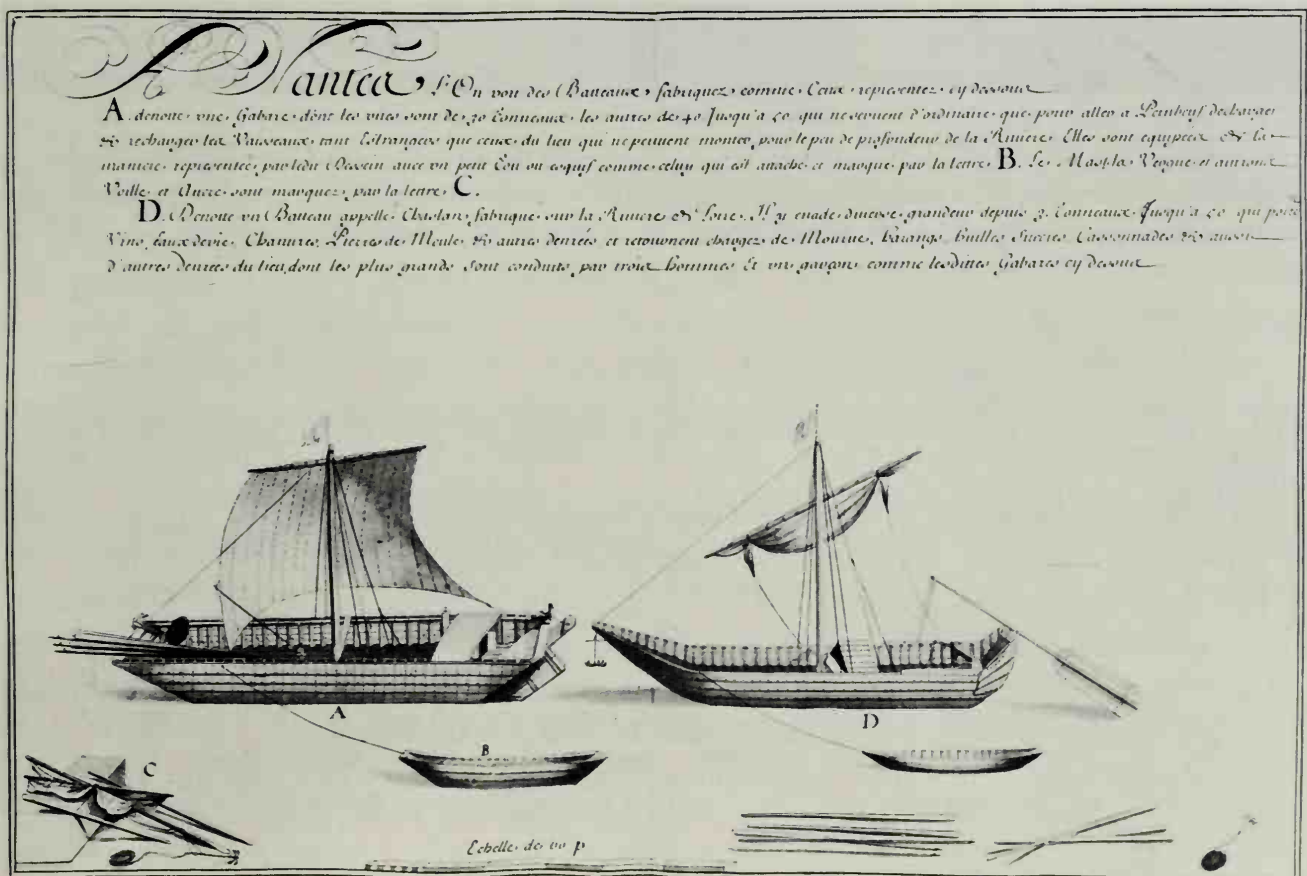 A Nantes L'On voit des Batteaux fabriquez comme Ceux representez cy dessous
A. denotte vne Gabare dont les vnes sont de 30 Tonneaux les autres de 40 Jusqu'a 50 qui ne servent d'ordinaire que pour aller a Peinbeuf descharger
& recharger les Vaisseaux tant Estrangers que ceux du lieu qui ne peuvent monter pour le peu de profondeur de la Riviere Elles sont equipées de la
maniere representée par ledit Dessein avec vn petit ou esquif comme celuy qui est attaché et marqué par la lettre B. Le Mast la Vergue et avirons
Voille et Ancre sont marquez par la lettre C.
D. Denotte vn Batteau appellé Chaslan fabriqué sur la Riviere de Loire. Il y en a de diverse grandeur depuis Tonneaux Jusqu'a 50 qui
Vins, Eaux devie, Chanvres, Pierres de Moule & autres denrées et retournent chargez de Mourue, harangs, huilles Sucres Cassonnades & aussi
d'autres denrées du lieu dont les plus grands Sont conduits par trois hommes Et vn garçon comme lesdittes Gabares cy dessus
A
D
B
C
Echelle de p